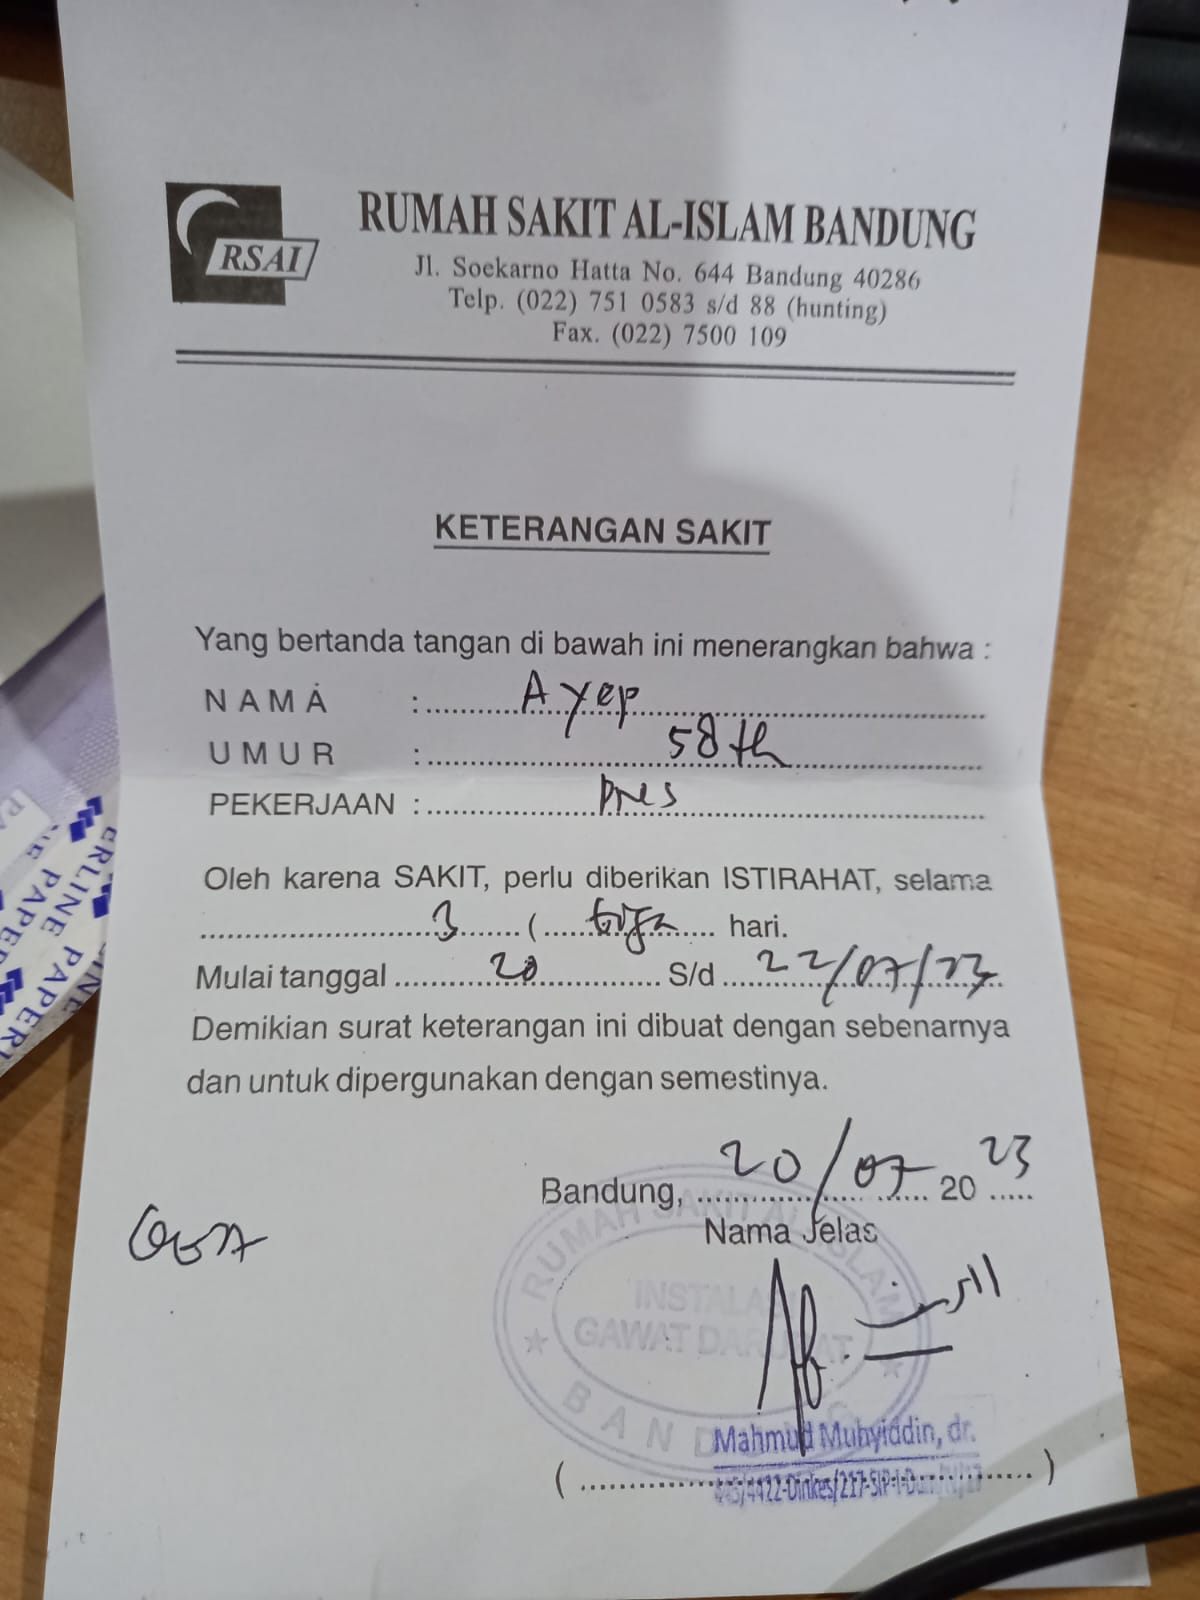 RSAI
RUMAH SAKIT AL-ISLAM BANDUNG
Jl. Soekarno Hatta No. 644 Bandung 40286
Telp. (022) 751 0583 s/d 88 (hunting)
Fax. (022) 7500 109
KETERANGAN SAKIT
Yang bertanda tangan di bawah ini menerangkan bahwa :
NAMA : Ayep
UMUR : 58 th
PEKERJAAN :
Oleh karena SAKIT, perlu diberikan ISTIRAHAT, selama
3 ( tiga hari.
Mulai tanggal 20 S/d 22/07/23
Demikian surat keterangan ini dibuat dengan sebenarnya
dan untuk dipergunakan dengan semestinya.
Bandung, 20/07 2023
Nama Jelas
RUMAH SAKIT AL-ISLAM
INSTALASI
GAWAT DARURAT
BANDUNG
Mahmud Muhyiddin, dr.
( )
ERLINE PAPER